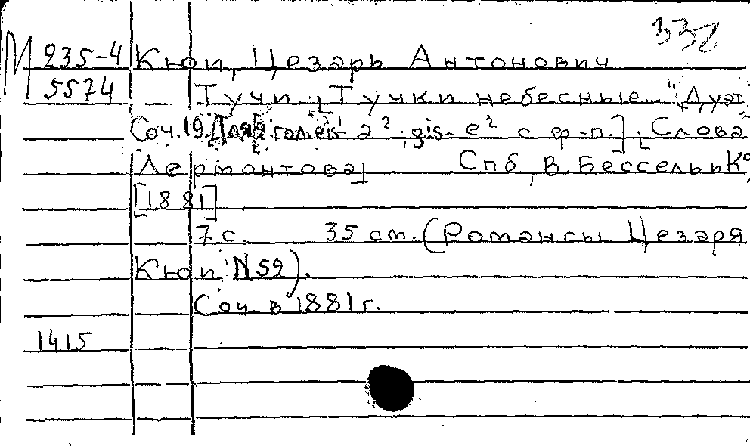 332
М 235-4 Кюи, Цезарь Антонович
5574 Тучи. [Тучки небесные. Дуэт.
Соч. 19. Для 2 гол. eis¹-a², gis-e² с ф-п.]. [Слова
Лермонтова] Спб, В. Бессель и К°
[1881]
7 с. 35 см. (Романсы Цезаря
Кюи. N 59).
Соч. в 1881 г.
1415